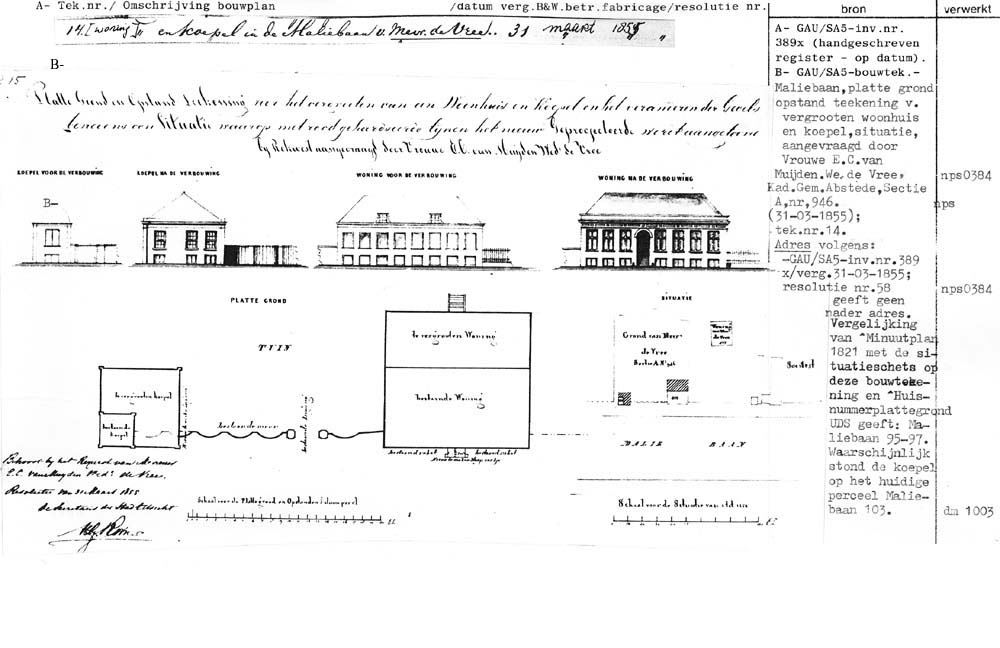 A- Tek.nr./ Omschrijving bouwplan /datum verg.B&W.betr.fabricage/resolutie nr.
bron
verwerkt
14. I woning en koepel in de Maliebaan v. Mevr. de Vree. 31 maart 1855
B-
15
Platte Grond en Opstand Teekening voor het vergrooten van een Woonhuis en Koepel en het veranderen der Gevels
benevens een Situatie waarop met rood gearceerde lijnen het nieuw Geprojecteerde werdt aangetoond
bij Rekwest aangevraagd door Vrouwe E.C. van Muijden Wed. de Vree
KOEPEL VOOR DE VERBOUWING
KOEPEL NA DE VERBOUWING
WONING VOOR DE VERBOUWING
WONING NA DE VERBOUWING
B-
PLATTE GROND
SITUATIE
TUIN
te vergrooten Woning
bestaande Woning
te vergrooten koepel
bestaande koepel
bestaande muur
Grond van Mevr.
de Vree
Sectie A N° 946
MALIE BAAN
Behoort bij het Request van Mevrouw
E.C. van Muijden Wed. de Vree.
Resolutie van 31 Maart 1855
de Secretaris der Stad Utrecht
Schaal voor de Plattegrond en Opstanden
Schaal voor de Situatie van
A- GAU/SA5-inv.nr.
389x (handgeschreven
register - op datum).
B- GAU/SA5-bouwtek.-
Maliebaan,platte grond
opstand teekening v.
vergrooten woonhuis
en koepel,situatie,
aangevraagd door
Vrouwe E.C.van
Muijden.We.de Vree,
Kad.Gem.Abstede,Sectie
A,nr,946.
(31-03-1855);
tek.nr.14.
Adres volgens:
-GAU/SA5-inv.nr.389
x/verg.31-03-1855;
resolutie nr.58
geeft geen
nader adres.
Vergelijking
van ^Minuutplan
1821 met de si-
tuatieschets op
deze bouwteke-
ning en ^Huis-
nummerplattegrond
UDS geeft: Ma-
liebaan 95-97.
Waarschijnlijk
stond de koepel
op het huidige
perceel Malie-
baan 103.
nps0384
nps
nps0384
dm 1003